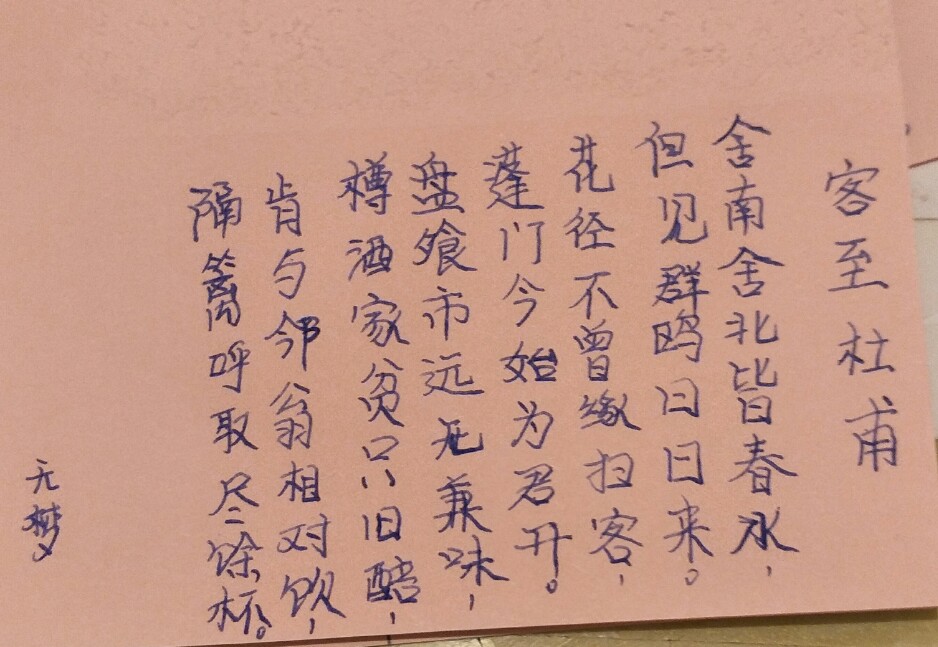 客至杜甫
舍南舍北皆春水，
但见群鸥日日来。
花径不曾缘扫客，
蓬门今始为君开。
盘飧市远无兼味，
樽酒家贫只旧醅，
肯与邻翁相对饮，
隔篱呼取尽馀杯。
无梦